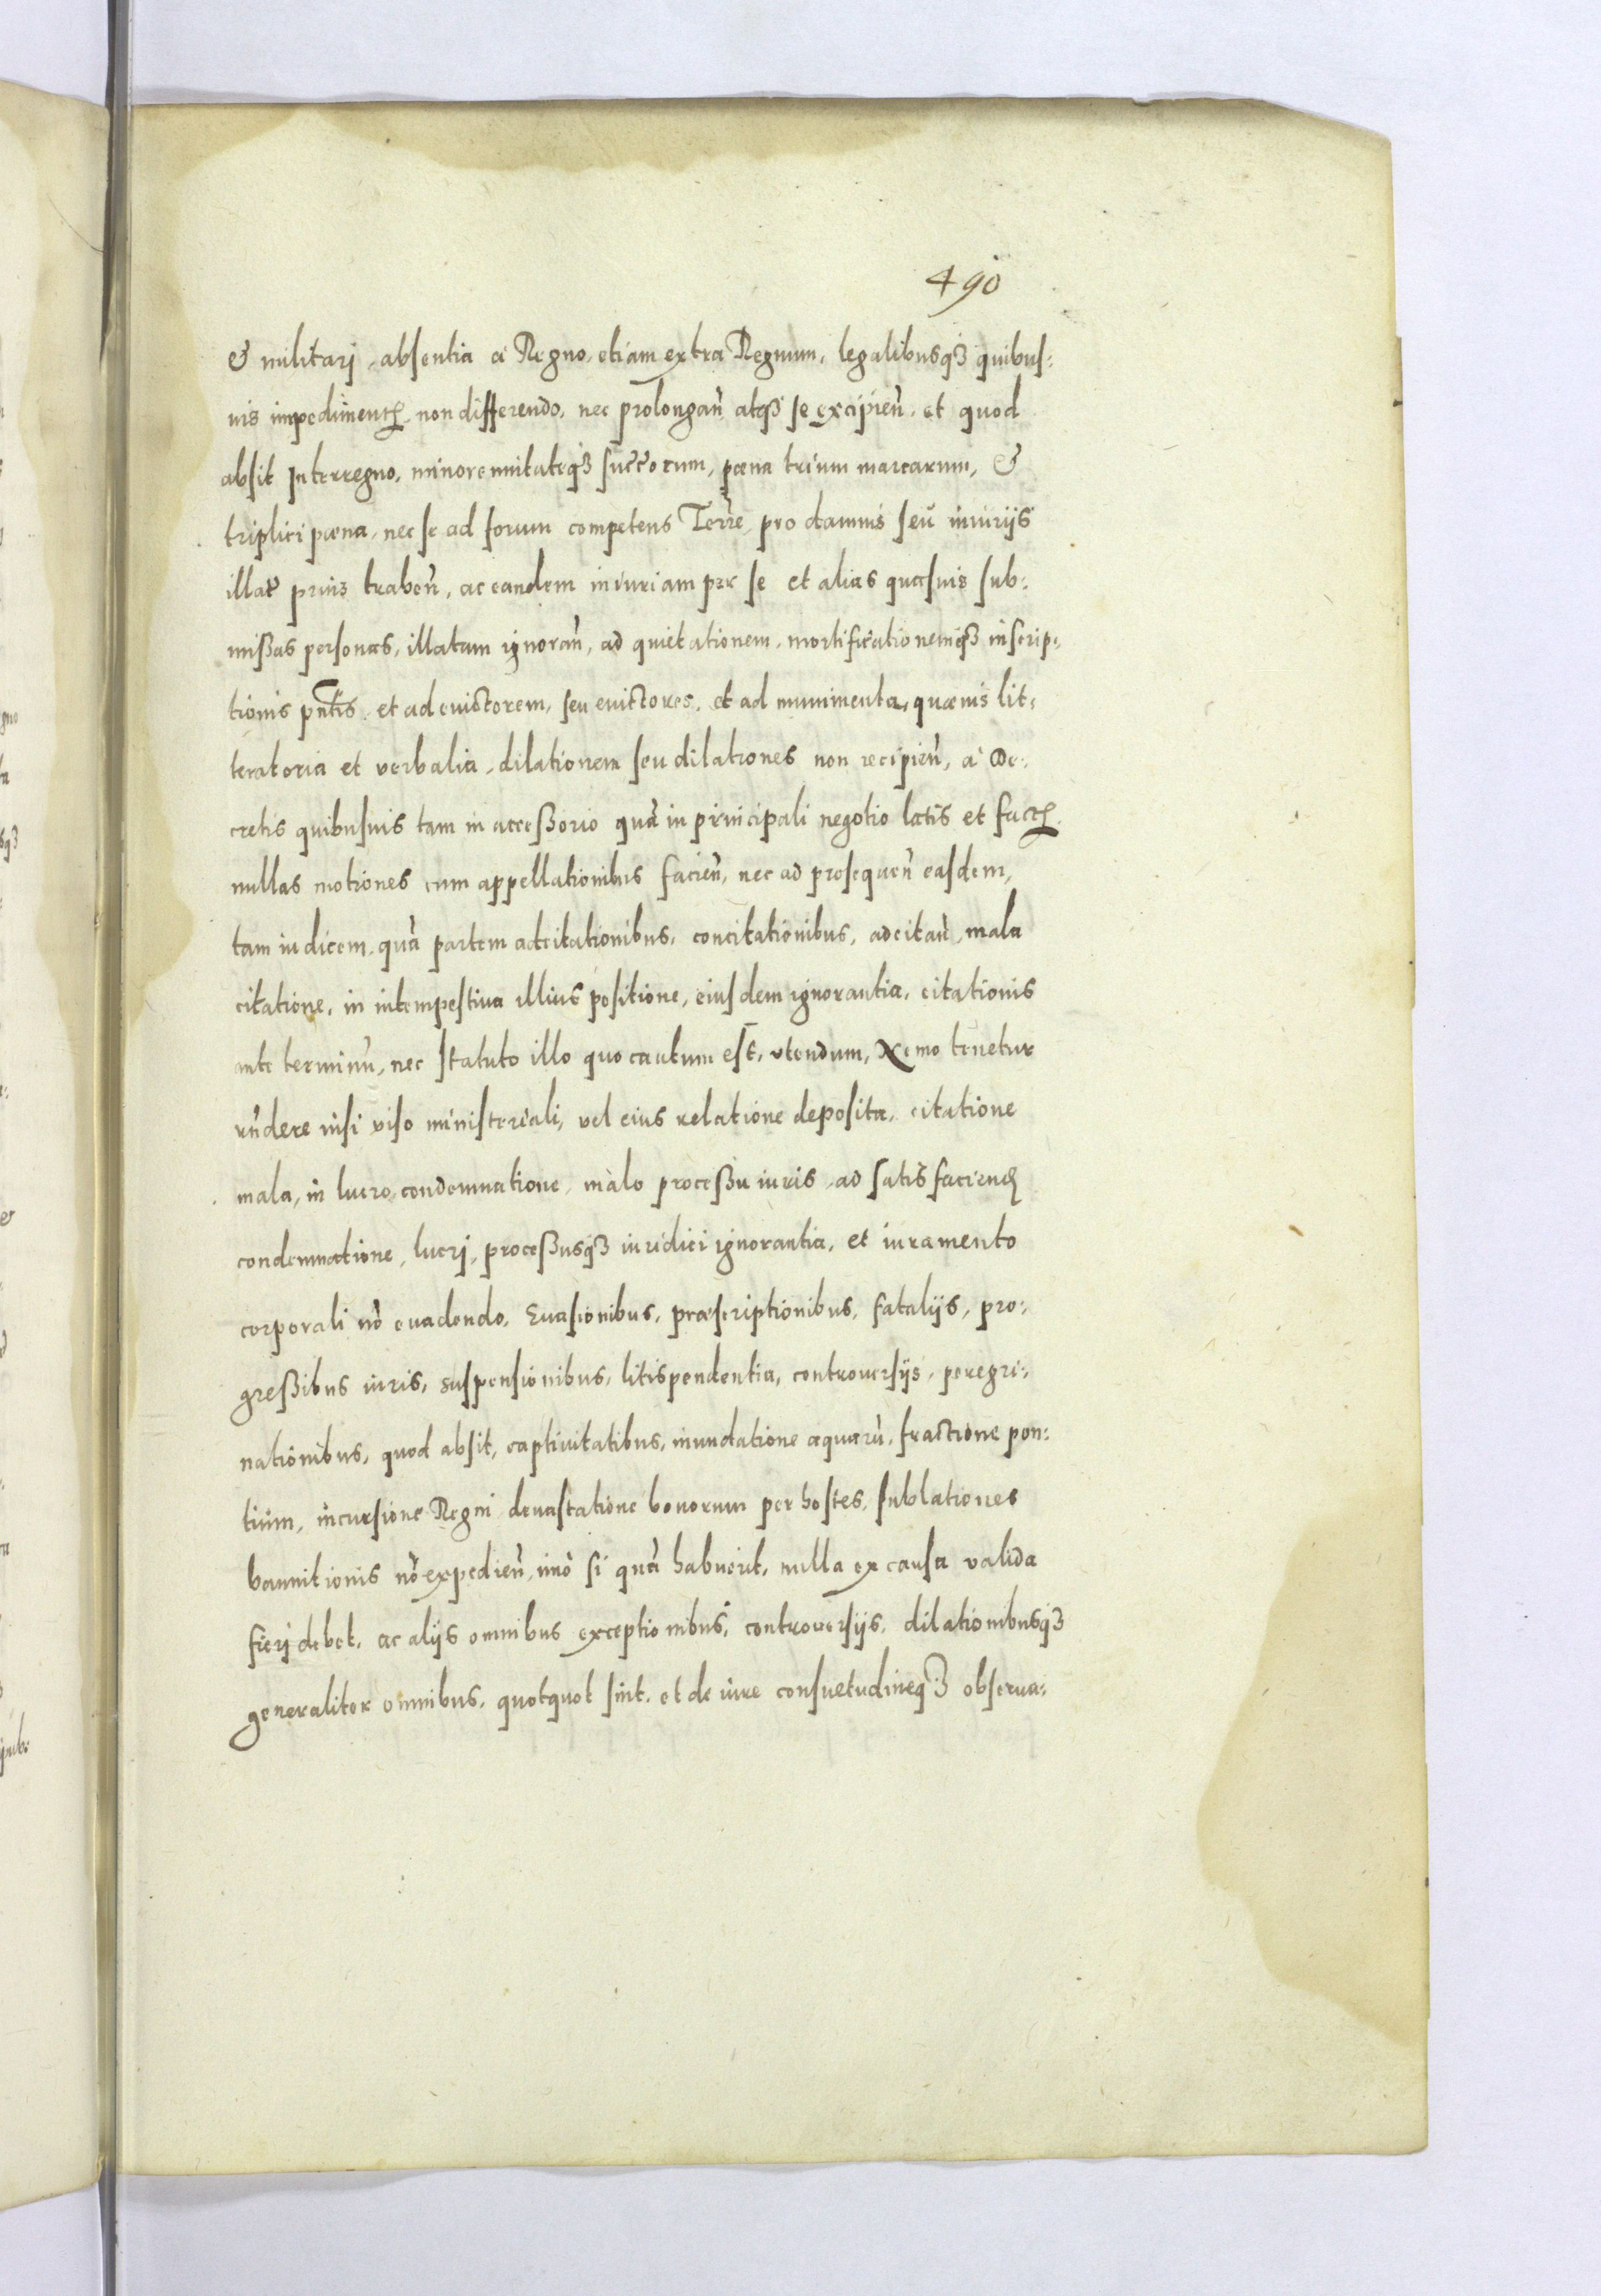 490
& militarj, absentia à Regno, etiam extra Regnum, legalibusqȝ quibus:
uis impedimentꝭ non differendo, nec prolongañ, atqȝ se excipień, et quod
absit Interregno, minorennitateqȝ succorum, pœna trium marcarum, &
triplici pœna, nec se ad forum competens Terre, pro damnis seu iniurijs
illat̃ prius traheñ, ac eandem iniuriam per se et alias quasuis sub:
missas personas, illatam ignorañ, ad quietationem, mortificationemqȝ inscrip:
tionis pñtis, et ad euictorem, seu euictores, et ad munimenta, quæuis lit:
teratoria et verbalia, dilationem seu dilationes non recipień, à De:
cretis quibusuis tam in accessorio quà in principali negotio latis et factꝭ
nullas motiones cum appellationibus facień, nec ad prosequeñ easdem,
tam iudicem, quà partem adcitationibus, concitationibus, adcitañ, mala
citatione, in intempestiua illius positione, eiusdem ignorantia, citationis
ante terminũ, nec statuto illo quo cautum est, vtendum, Nemo tenetur
rñdere nisi viso ministeriali, vel eius relatione deposita, citatione
mala, in lucro, condemnatione, malo processu iuris, ad satisfaciend̃
condemnatione, lucrj, processusqȝ iuridici ignorantia, et iuramento
corporali nõ euadendo, Euasionibus, præscriptionibus, fatalijs, pro:
gressibus iuris, suspensionibus, litispendentia, controuersijs, peregri:
nationibus, quod absit, captiuitatibus, inundatione aquarũ, fractione pon:
tium, incursione Regni, deuastatione bonorum per hostes, sublationes
bannitionis nõ expedień, imò si quà habuerit, nulla ex causa valida
fierj debet, ac alijs omnibus exceptionibus, controuersijs, dilationibusqȝ
generaliter omnibus, quotquot sint, et de iure consuetudineqȝ obserua: